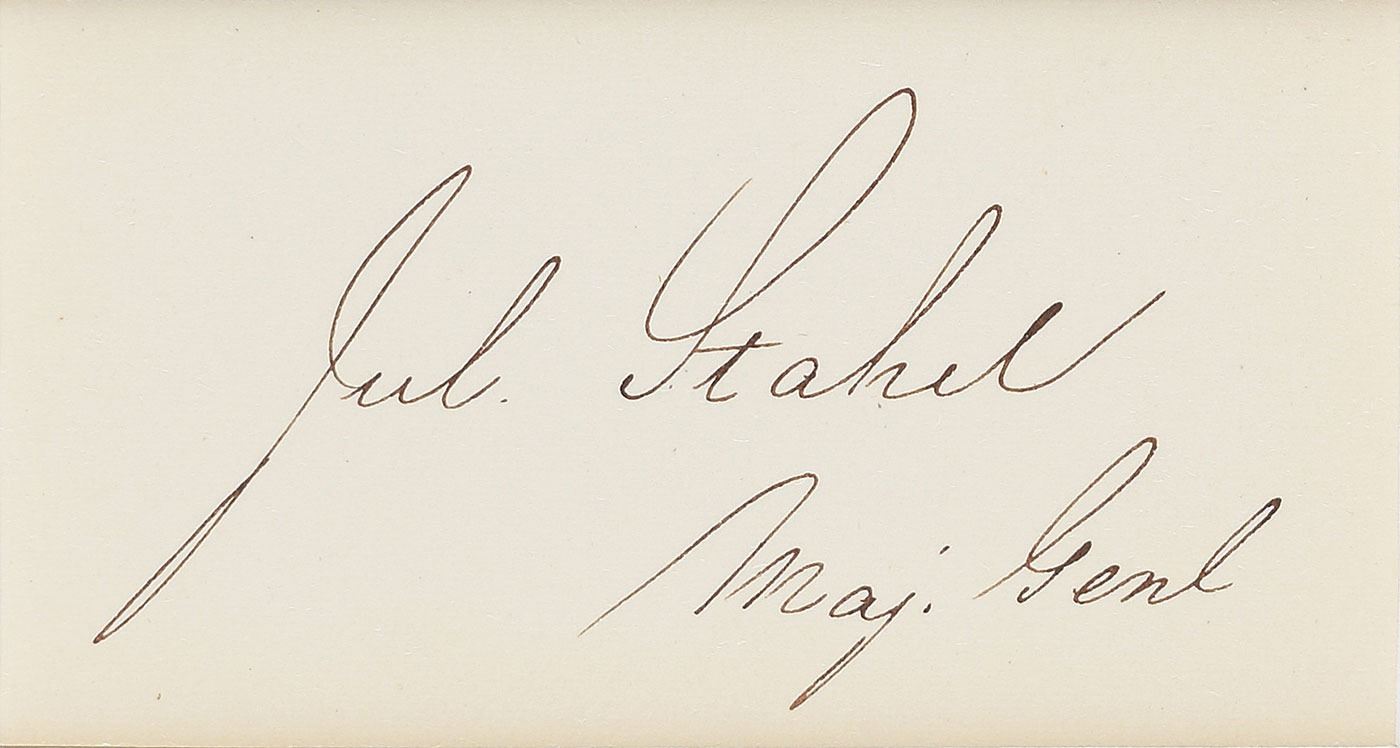 Jul. Stahel
Maj. Genl